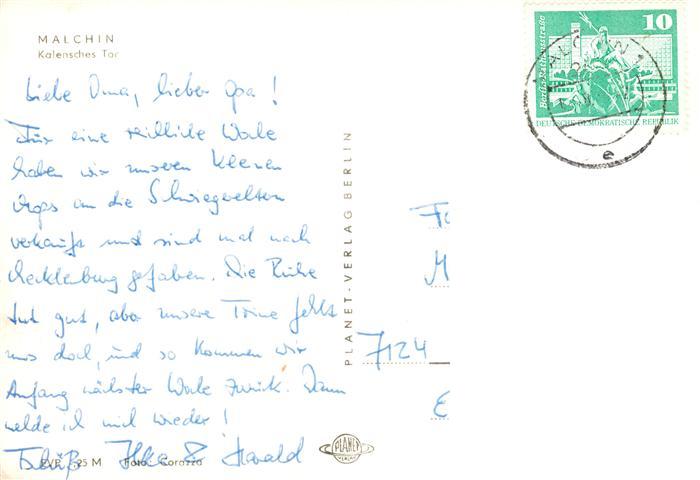 MALCHIN
Kalensches Tor
Liebe Oma, lieber Opa!
Für eine reichliche Woche
haben wir unseren kleinen
an die Schwiegereltern
verkauft und sind mal nach
Mecklenburg gefahren. Die Ruhe
tut gut, aber unsere Trine fehlt
uns doch, und so kommen wir
Anfang nächster Woche zurück. Dann
melde ich mich wieder!
Tschüß Ilka & Harald
EVP -,25 M Foto: Corazza
PLANET-VERLAG BERLIN
PLANET
VERLAG
10
Berlin, Rathausstraße
DEUTSCHE DEMOKRATISCHE REPUBLIK
MALCHIN 1
e
7124